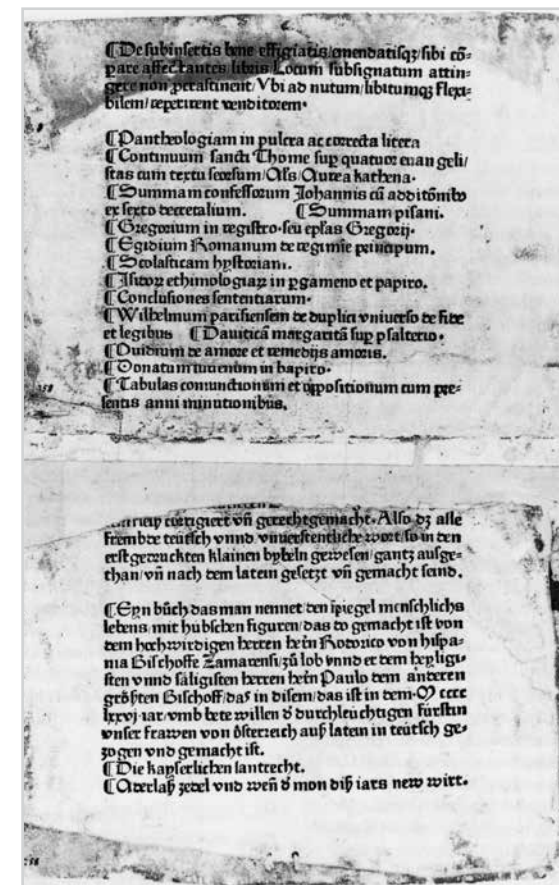 ⁋De subinsertis bene effigiatis/emendatisqꝫ/sibi cō⸗
pare affectantes/libris Locum subsignatum attin⸗
gere non perastinent/Vbi ad nutum/libitumqꝫ flexi⸗
bilem/repetirent venditorem·
⁋Pantheologiam in pulcra ac correcta litera
⁋Continuum sancti Thome sup quatuor euan geli/
stas cum textu seorsum/Als/Aurea kathena·
⁋Summam confessorum Johannis cū additōnibo
ex sexto decretalium. ⁋Summam pisani.
⁋Gregorium in registro·seu epſas Gregorij·
⁋Egidium Romanum de regimīe principum.
⁋Scolasticam hystoriam.
⁋Isitoꝝ ethimologiaꝝ in pgameno et papiro.
⁋Conclusiones sententiarum·
⁋Wilhelmum parisiensem de duplici vniuerso de fide
et legibus ⁋Dauiticā margaritā sup psalterio·
⁋Ouidium de amore et remedijs amoris.
⁋Donatum iuuenum in bapiro·
⁋Tabulas coniunctionum et oppositionum cum pre⸗
sentis anni minutionibus.
corrigiert vn̄ gerechtgemacht·Also dz alle
frembde teütsch vnnd vnuerstentliche wort/so in den
erstgeruckten klainen bybeln gewesen/gantz ausge⸗
than/vn̄ nach dem latein gesetzt vn̄ gemacht seind.
⁋Eyn bůch das man nennet den spiegel menschlichs
lebens/mit hübschen figuren/das do gemacht ist von
dem hochwirdigen herren hern̄ Rodorico von hispa⸗
nia Bischoffe Zamorensi/zů lob vnnd er dem heyligi⸗
sten vnnd säligisten herren hern̄ Paulo dem anderen
gröſten Bischoff/das in disem/das ist in dem·M cccc
lxxvj·iar/vmb bete willen d̄ durchleüchtigen fürstin
vnser frawen von österreich auß latein in teütsch ge⸗
zogen vnd gemacht ist.
⁋Die kayserlichen lantrecht.
⁋Aderlaß zedel vnd wen̄ d̄ mon diß iars new wirt·